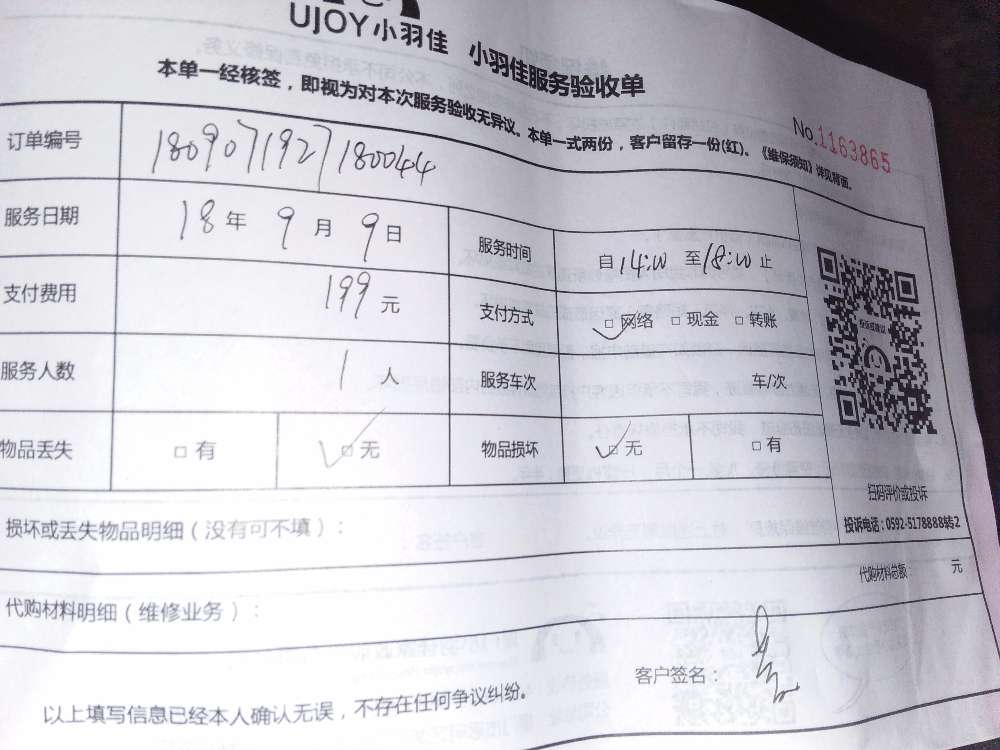 UJOY小羽佳 小羽佳服务验收单
本单一经核签，即视为对本次服务验收无异议。本单一式两份，客户留存一份(红)。《维保须知》详见背面。
No.1163865
订单编号 1809071927180044
服务日期 18年 9月 9日 服务时间 自14:00 至18:00止
支付费用 199元 支付方式 □网络 □现金 □转账
服务人数 1人 服务车次 车/次
物品丢失 □有 □无 物品损坏 □无 □有
投诉或建议
扫码评价或投诉
投诉电话：0592-5178888转2
损坏或丢失物品明细（没有可不填）：
代购材料明细（维修业务）： 代购材料总额 元
客户签名：
以上填写信息已经本人确认无误，不存在任何争议纠纷。